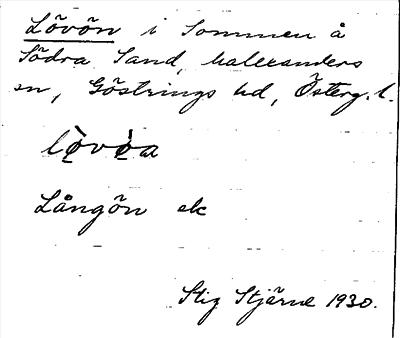 Lövön i Sommen å
Södra Sand, Malexanders
sn, Göstrings hd, Österg. l.
lòvòa
Långön ek
Stig Stjärne 1930.